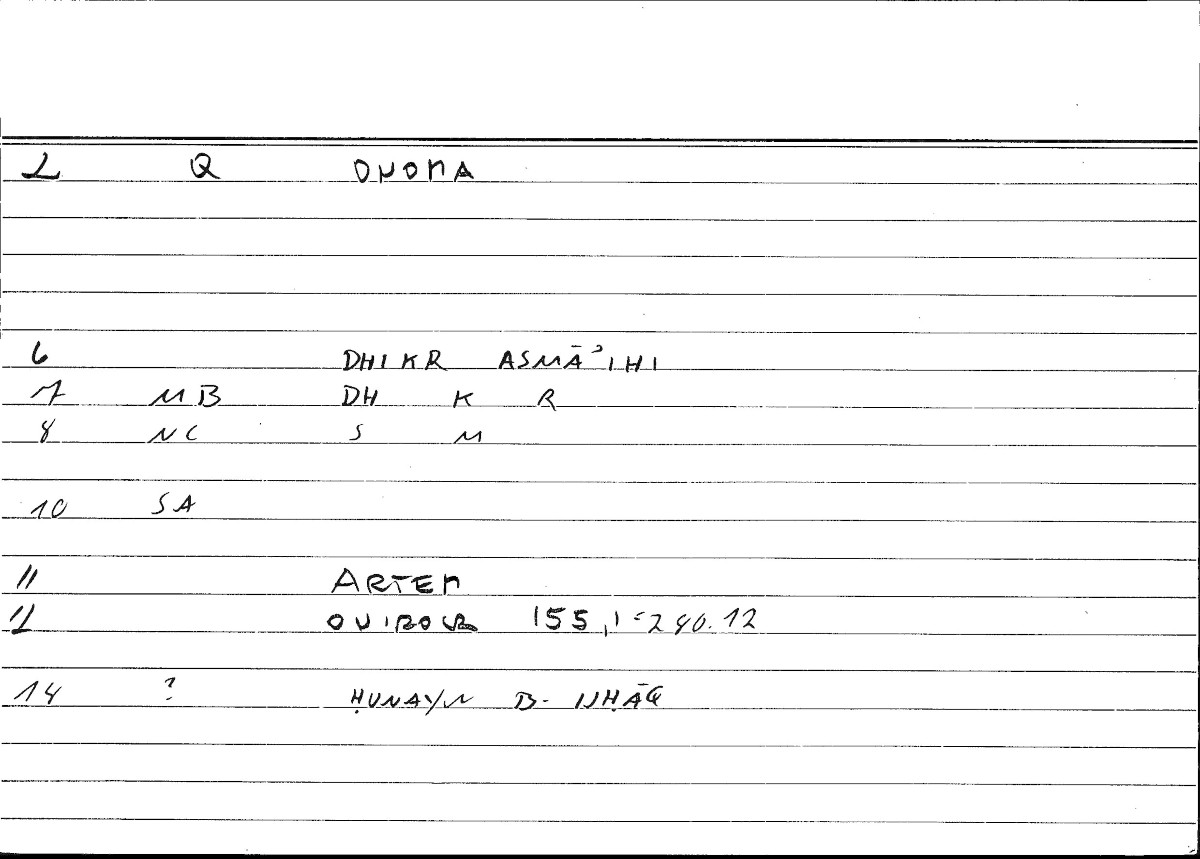 2 Q ΟΝΟΜΑ
6 DHIKR ASMĀʾIHI
7 MB DH K R
8 NC S M
10 SA
11 ARTEM
12 ONIROCR 155,1=280.12
14 ? ḤUNAYN B. ISḤĀQ